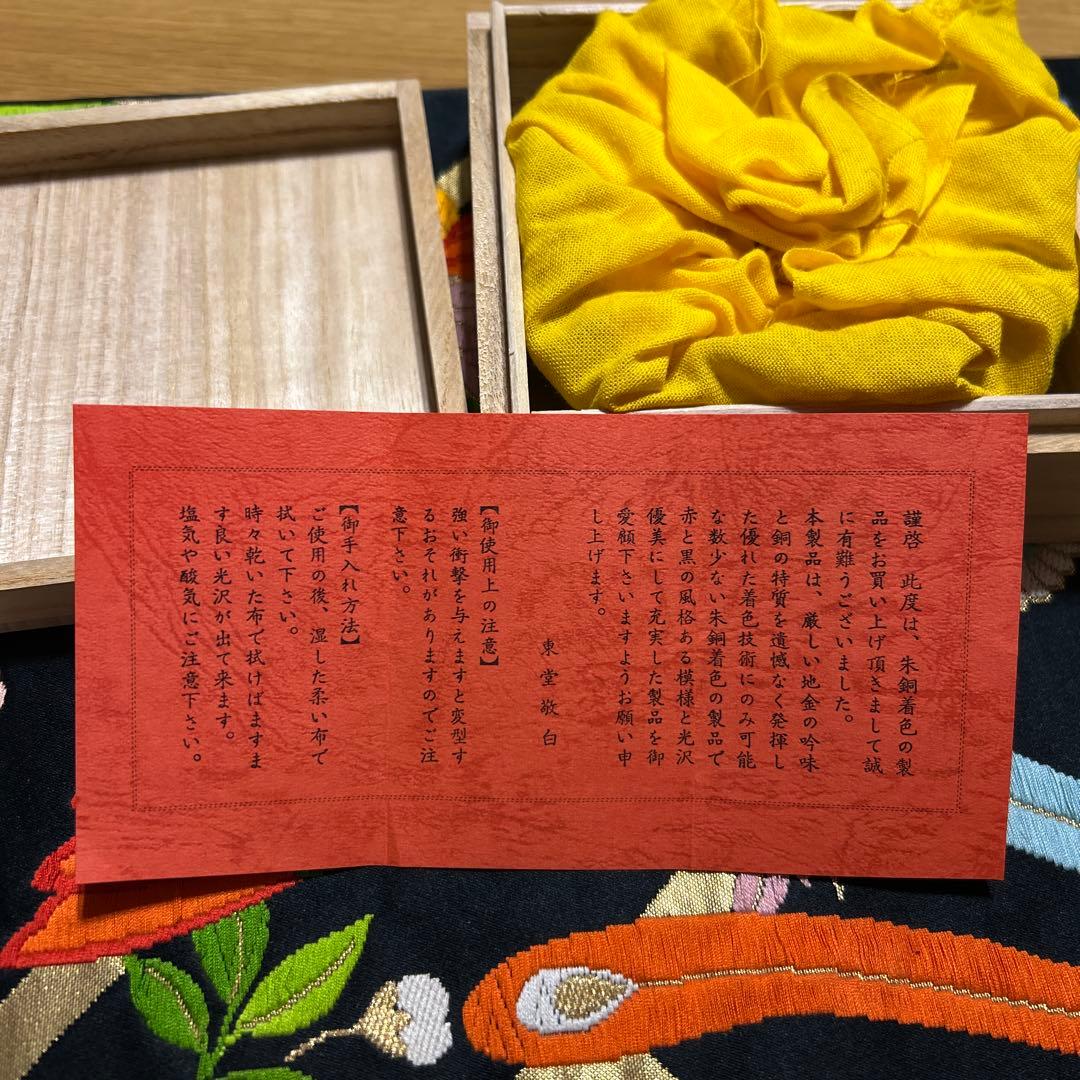 謹啓　此度は、朱銅着色の製
品をお買い上げ頂きまして誠
に有難うございました。
本製品は、厳しい地金の吟味
と銅の特質を遺憾なく発揮し
た優れた着色技術にのみ可能
な数少ない朱銅着色の製品で
赤と黒の風格ある模様と光沢
優美にして充実した製品を御
愛顧下さいますようお願い申
し上げます。
東堂敬白
【御使用上の注意】
強い衝撃を与えますと変型す
るおそれがありますのでご注
意下さい。
【御手入れ方法】
ご使用の後、湿した柔い布で
拭いて下さい。
時々乾いた布で拭けばますま
す良い光沢が出て来ます。
塩気や酸気にご注意下さい。